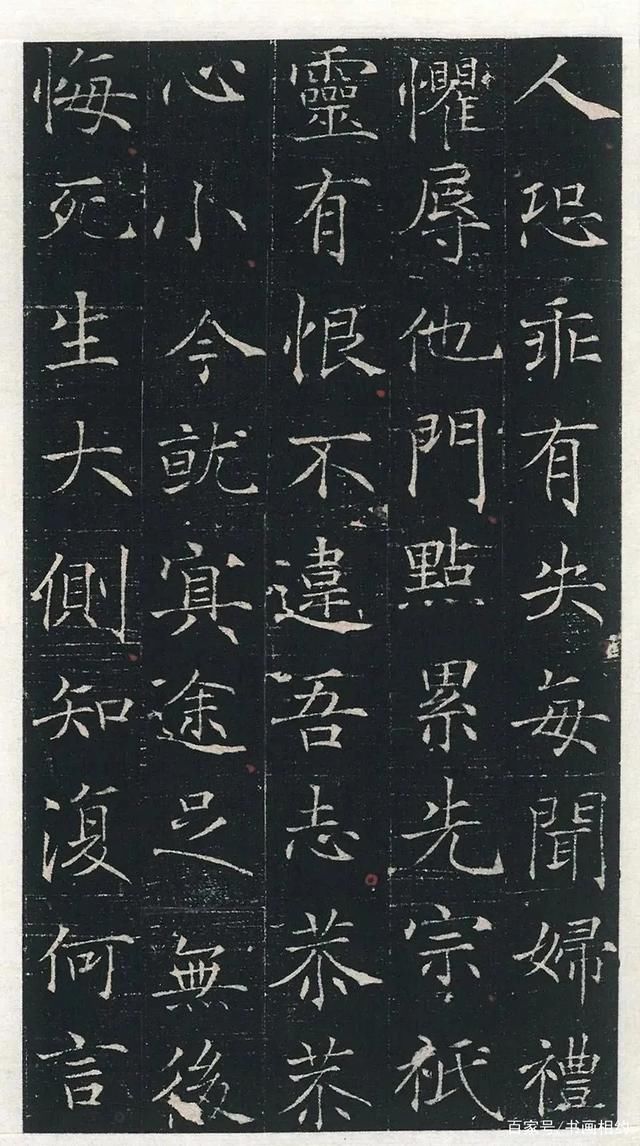 人恐乖有失每聞婦禮
懼辱他門點累先宗祇
靈有恨不違吾志恭恭
心小今就㝠途足無後
悔死生大側知復何言
百家号/书画相约